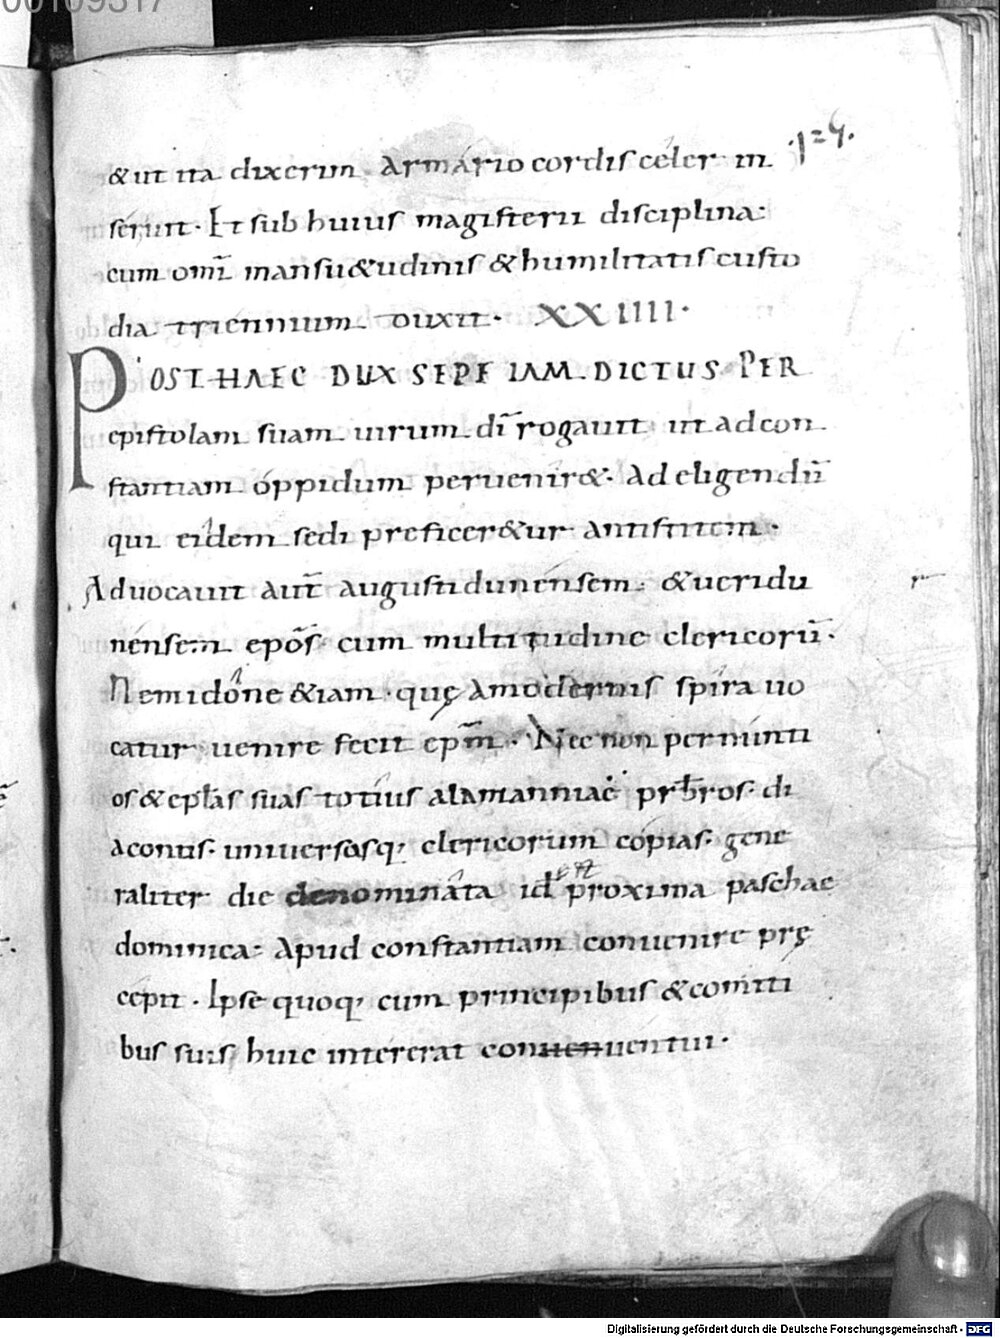 00109317
·124·
& ut ita dixerim. Armario cordis celer in
seruit· Et sub huius magisterii disciplina:
cum omī mansu&udinis & humilitatis custo
dia triennium duxit· XXIIII·
POST HAEC DUX SEPE IAM DICTUS PER
epistolam suam uirum dī rogauit ut ad con
stantiam oppidum peruenir&· Ad eligendū
qui eidem sedi preficer&ur antistitem·
Aduocauit aut̄ augustidunensem· & ueridu
nensem ep̄os· cum multitudine clericorū·
Nemidone &iam· quę a modernis spira uo
catur uenire fecit ep̄m· Nec non per nunti
os & ep̄las suas totius alamanniae· prb̄ros· di
aconus· uniuersasq; clericorum copias· gene
raliter die denominata id ÷ proxima paschae
est
dominica: Apud constantiam conuenire prę
cepit· Ipse quoq; cum principibus & comiti
bus suis huic intererat conuenuentui·
r
Digitalisierung gefördert durch die Deutsche Forschungsgemeinschaft - DFG